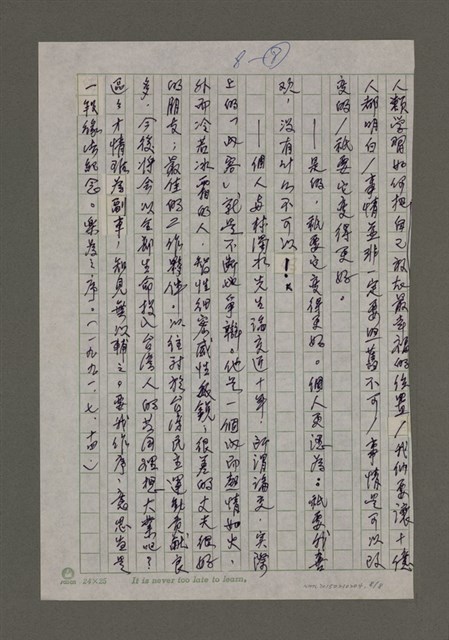 8－⑨
人類学習如何把自己放在最幸福的位置/我們要讓十億
人都明白/事情並非一定要照舊不可/事情是可以改
變的/祇要它變得更好。
——是的，祇要它變得更好。個人更認為：祇要我喜
欢，没有什么不可以！
——個人與林濁水先生論交近十年，所謂論交，實際
上的「内容」就是不斷地爭辯。他是一個内而熱情如火，
外而冷若冰霜的人，智性細密感性敏銳，很差的丈夫很好
的朋友；最佳的工作夥伴。以往对於台湾民主運動貢献良
多，今後將会以全部生命投入台湾人的共同理想大業吧？
區區才情雖為副車，知見無以輔之。要我作序，意思当是
一段緣法紀念。是為之序。（一九九一、七、十四、）
24×25
It is never too late to learn.